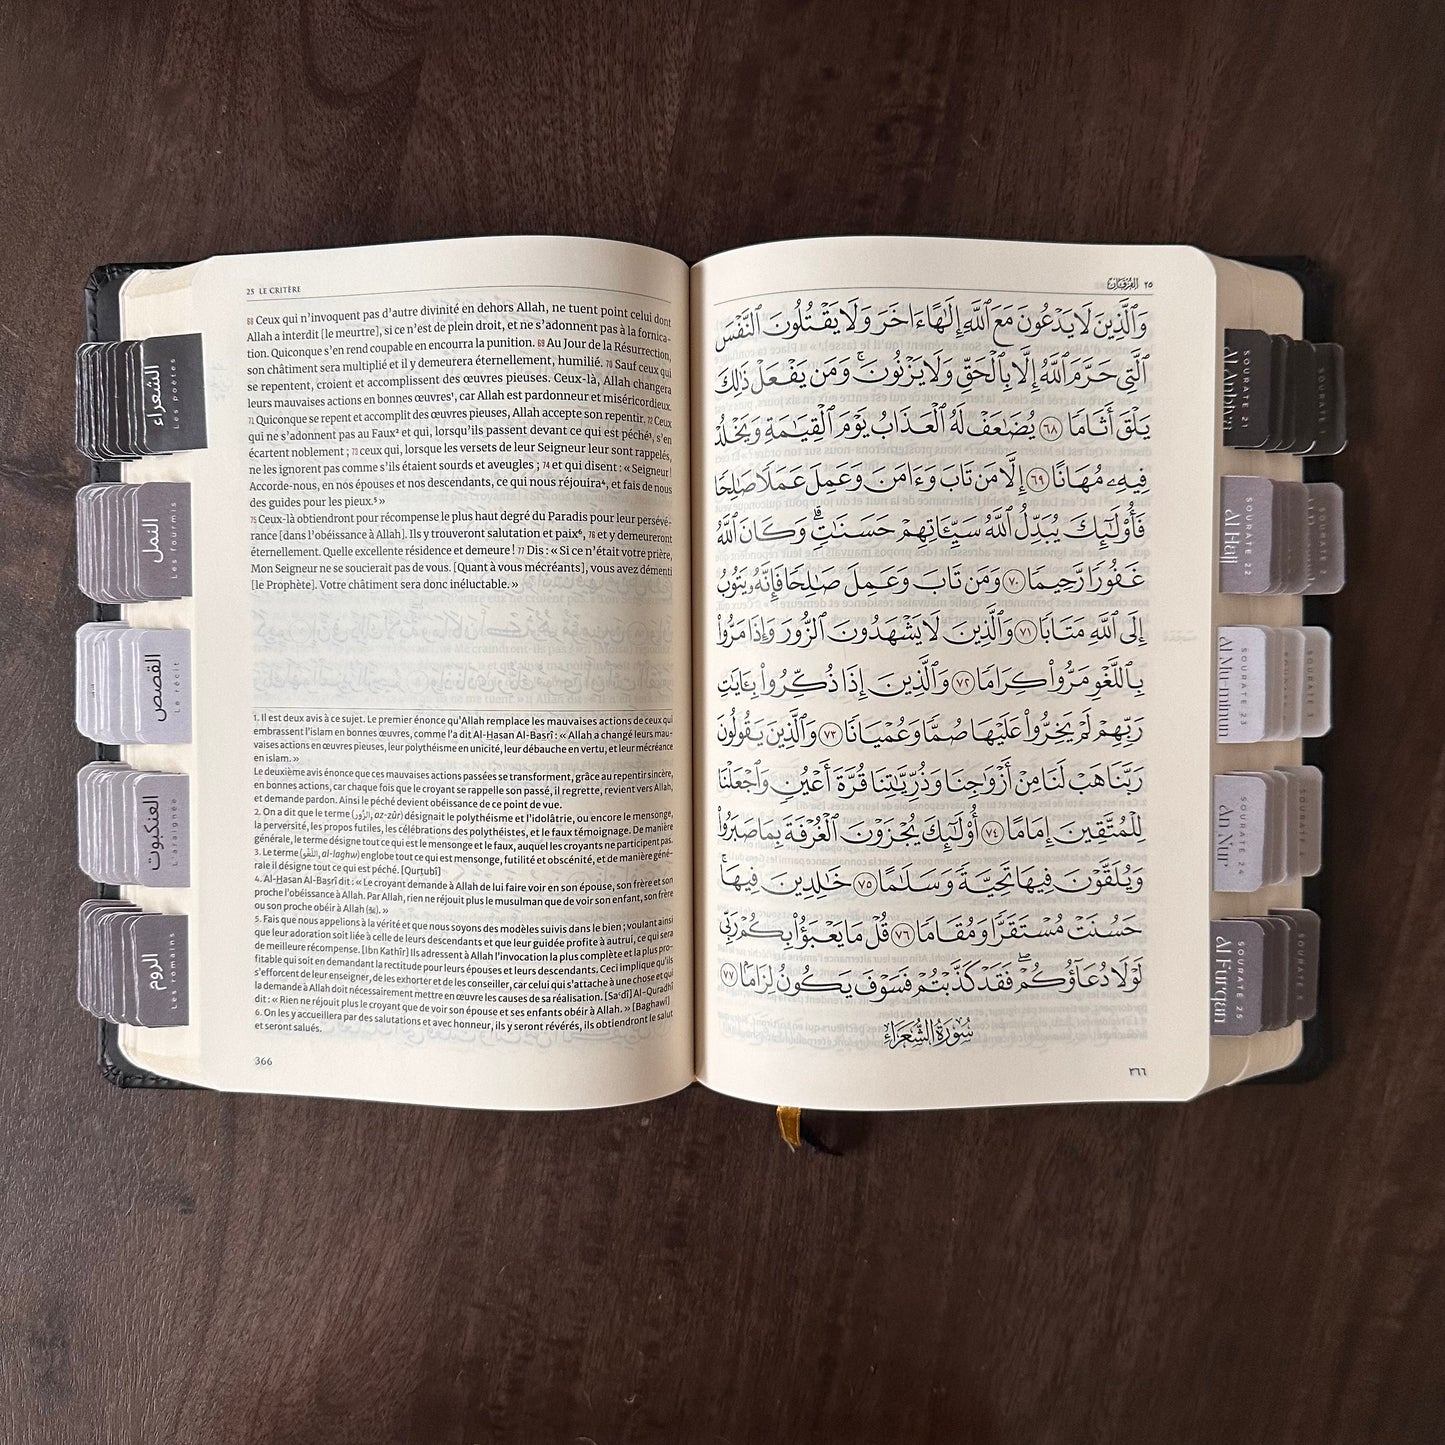 25 LE CRITÈRE
68 Ceux qui n'invoquent pas d'autre divinité en dehors Allah, ne tuent point celui dont
Allah a interdit [le meurtre], si ce n'est de plein droit, et ne s'adonnent pas à la fornica-
tion. Quiconque s'en rend coupable en encourra la punition. 69 Au Jour de la Résurrection,
son châtiment sera multiplié et il y demeurera éternellement, humilié. 70 Sauf ceux qui
se repentent, croient et accomplissent des œuvres pieuses. Ceux-là, Allah changera
leurs mauvaises actions en bonnes œuvres¹, car Allah est pardonneur et miséricordieux.
71 Quiconque se repent et accomplit des œuvres pieuses, Allah accepte son repentir. 72 Ceux
qui ne s'adonnent pas au Faux² et qui, lorsqu'ils passent devant ce qui est péché³, s'en
écartent noblement ; 73 ceux qui, lorsque les versets de leur Seigneur leur sont rappelés,
ne les ignorent pas comme s'ils étaient sourds et aveugles ; 74 et qui disent : « Seigneur!
Accorde-nous, en nos épouses et nos descendants, ce qui nous réjouira⁴, et fais de nous
des guides pour les pieux.⁵ »
75 Ceux-là obtiendront pour récompense le plus haut degré du Paradis pour leur persévé-
rance [dans l'obéissance à Allah]. Ils y trouveront salutation et paix⁶, 76 et y demeureront
éternellement. Quelle excellente résidence et demeure ! 77 Dis : « Si ce n'était votre prière,
Mon Seigneur ne se soucierait pas de vous. [Quant à vous mécréants], vous avez démenti
[le Prophète]. Votre châtiment sera donc inéluctable. »
1. Il est deux avis à ce sujet. Le premier énonce qu'Allah remplace les mauvaises actions de ceux qui
embrassent l'islam en bonnes œuvres, comme l'a dit Al-Hasan Al-Basrî : « Allah a changé leurs mau-
vaises actions en œuvres pieuses, leur polythéisme en unicité, leur débauche en vertu, et leur mécréance
en islam. »
Le deuxième avis énonce que ces mauvaises actions passées se transforment, grâce au repentir sincère,
en bonnes actions, car chaque fois que le croyant se rappelle son passé, il regrette, revient vers Allah,
et demande pardon. Ainsi le péché devient obéissance de ce point de vue.
2. On a dit que le terme (الزُّور, az-zûr) désignait le polythéisme et l'idolâtrie, ou encore le mensonge,
la perversité, les propos futiles, les célébrations des polythéistes, et le faux témoignage. De manière
générale, le terme désigne tout ce qui est le mensonge et le faux, auquel les croyants ne participent pas.
3. Le terme (اللَّغْو, al-laghw) englobe tout ce qui est mensonge, futilité et obscénité, et de manière géné-
rale il désigne tout ce qui est péché. [Qurtubî]
4. Al-Hasan Al-Basrî dit : « Le croyant demande à Allah de lui faire voir en son épouse, son frère et son
proche l'obéissance à Allah. Par Allah, rien ne réjouit plus le musulman que de voir son enfant, son frère
ou son proche obéir à Allah (ﷻ). »
5. Fais que nous appelions à la vérité et que nous soyons des modèles suivis dans le bien ; voulant ainsi
que leur adoration soit liée à celle de leurs descendants et que leur guidée profite à autrui, ce qui sera
de meilleure récompense. [Ibn Kathîr] Ils adressent à Allah l'invocation la plus complète et la plus pro-
fitable qui soit en demandant la rectitude pour leurs épouses et leurs descendants. Ceci implique qu'ils
s'efforcent de leur enseigner, de les exhorter et de les conseiller, car celui qui s'attache à une chose et qui
la demande à Allah doit nécessairement mettre en œuvre les causes de sa réalisation. [Sa'dî] Al-Quradhî
dit : « Rien ne réjouit plus le croyant que de voir son épouse et ses enfants obéir à Allah. » [Baghawî]
6. On les y accueillera par des salutations et avec honneur, ils y seront révérés, ils obtiendront le salut
et seront salués.
366
٢٥ الفُرْقَان
وَٱلَّذِينَ لَا يَدْعُونَ مَعَ ٱللَّهِ إِلَٰهًا ءَاخَرَ وَلَا يَقْتُلُونَ ٱلنَّفْسَ
ٱلَّتِي حَرَّمَ ٱللَّهُ إِلَّا بِٱلْحَقِّ وَلَا يَزْنُونَ ۚ وَمَن يَفْعَلْ ذَٰلِكَ
يَلْقَ أَثَامًا ٦٨ يُضَٰعَفْ لَهُ ٱلْعَذَابُ يَوْمَ ٱلْقِيَٰمَةِ وَيَخْلُدْ
فِيهِۦ مُهَانًا ٦٩ إِلَّا مَن تَابَ وَءَامَنَ وَعَمِلَ عَمَلًا صَٰلِحًا
فَأُوْلَٰٓئِكَ يُبَدِّلُ ٱللَّهُ سَيِّـَٔاتِهِمْ حَسَنَٰتٍ ۗ وَكَانَ ٱللَّهُ
غَفُورًا رَّحِيمًا ٧٠ وَمَن تَابَ وَعَمِلَ صَٰلِحًا فَإِنَّهُۥ يَتُوبُ
إِلَى ٱللَّهِ مَتَابًا ٧١ وَٱلَّذِينَ لَا يَشْهَدُونَ ٱلزُّورَ وَإِذَا مَرُّواْ
بِٱللَّغْوِ مَرُّواْ كِرَامًا ٧٢ وَٱلَّذِينَ إِذَا ذُكِّرُواْ بِـَٔايَٰتِ
رَبِّهِمْ لَمْ يَخِرُّواْ عَلَيْهَا صُمًّا وَعُمْيَانًا ٧٣ وَٱلَّذِينَ يَقُولُونَ
رَبَّنَا هَبْ لَنَا مِنْ أَزْوَٰجِنَا وَذُرِّيَّٰتِنَا قُرَّةَ أَعْيُنٍ وَٱجْعَلْنَا
لِلْمُتَّقِينَ إِمَامًا ٧٤ أُوْلَٰٓئِكَ يُجْزَوْنَ ٱلْغُرْفَةَ بِمَا صَبَرُواْ
وَيُلَقَّوْنَ فِيهَا تَحِيَّةً وَسَلَٰمًا ٧٥ خَٰلِدِينَ فِيهَا ۚ
حَسُنَتْ مُسْتَقَرًّا وَمُقَامًا ٧٦ قُلْ مَا يَعْبَؤُاْ بِكُمْ رَبِّي
لَوْلَا دُعَآؤُكُمْ ۖ فَقَدْ كَذَّبْتُمْ فَسَوْفَ يَكُونُ لِزَامًا ٧٧
سُورَةُ الشُّعَرَاءِ
٣٦٦
الشعراء
Les poètes
النمل
Les fourmis
القصص
Le récit
العنكبوت
L'araignée
الروم
Les romains
SOURATE 21
Al Anbiya
SOURATE 22
Al Hajj
SOURATE 23
Al Mu'minun
SOURATE 24
An Nur
SOURATE 25
Al Furqan
SOURATE
SOURATE
SOURATE
SOURATE
SOURATE